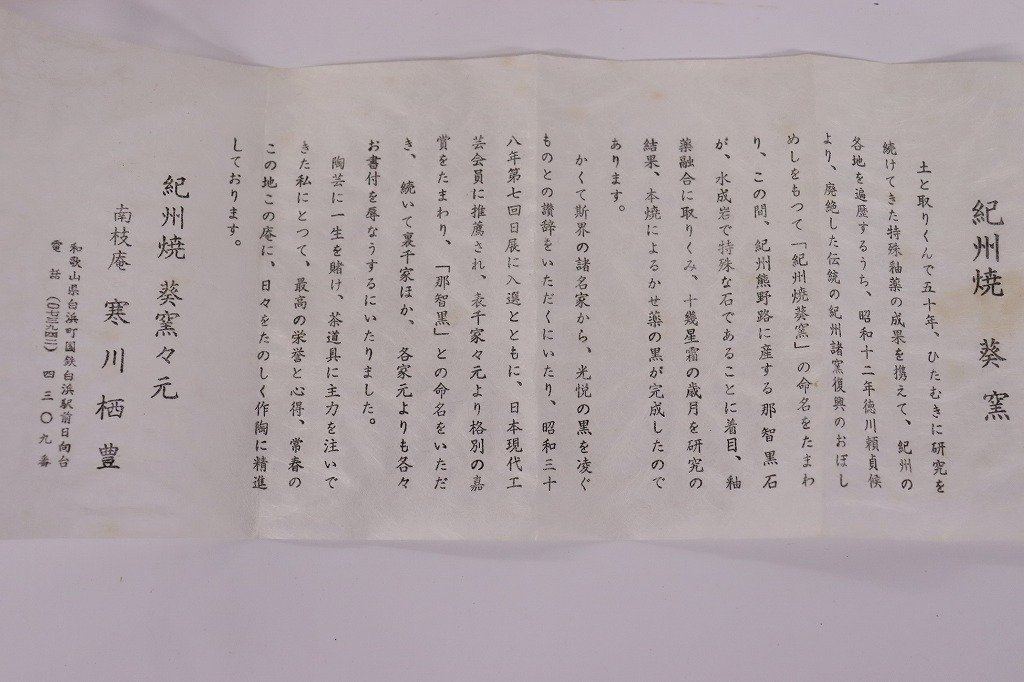 紀州焼　葵窯
土と取りくんで五十年、ひたむきに研究を
続けてきた特殊釉薬の成果を携えて、紀州の
各地を遍歴するうち、昭和十二年徳川頼貞候
より、廃絶した伝統の紀州諸窯復興のおぼし
めしをもつて「紀州焼葵窯」の命名をたまわ
り、この間、紀州熊野路に産する那智黒石
が、水成岩で特殊な石であることに着目、釉
薬融合に取りくみ、十幾星霜の歳月を研究の
結果、本焼によるかせ薬の黒が完成したので
あります。
かくて斯界の諸名家から、光悦の黒を凌ぐ
ものとの讃辞をいただくにいたり、昭和三十
八年第七回日展に入選とともに、日本現代工
芸会員に推薦され、表千家々元より格別の嘉
賞をたまわり、「那智黒」との命名をいただ
き、続いて裏千家ほか、各家元よりも各々
お書付を辱なうするにいたりました。
陶芸に一生を賭け、茶道具に主力を注いで
きた私にとつて、最高の栄誉と心得、常春の
この地この庵に、日々をたのしく作陶に精進
しております。
紀州焼　葵窯々元
南枝庵　寒川栖豊
和歌山県白浜町国鉄白浜駅前日向台
電話（〇七三九四二）四三〇九番